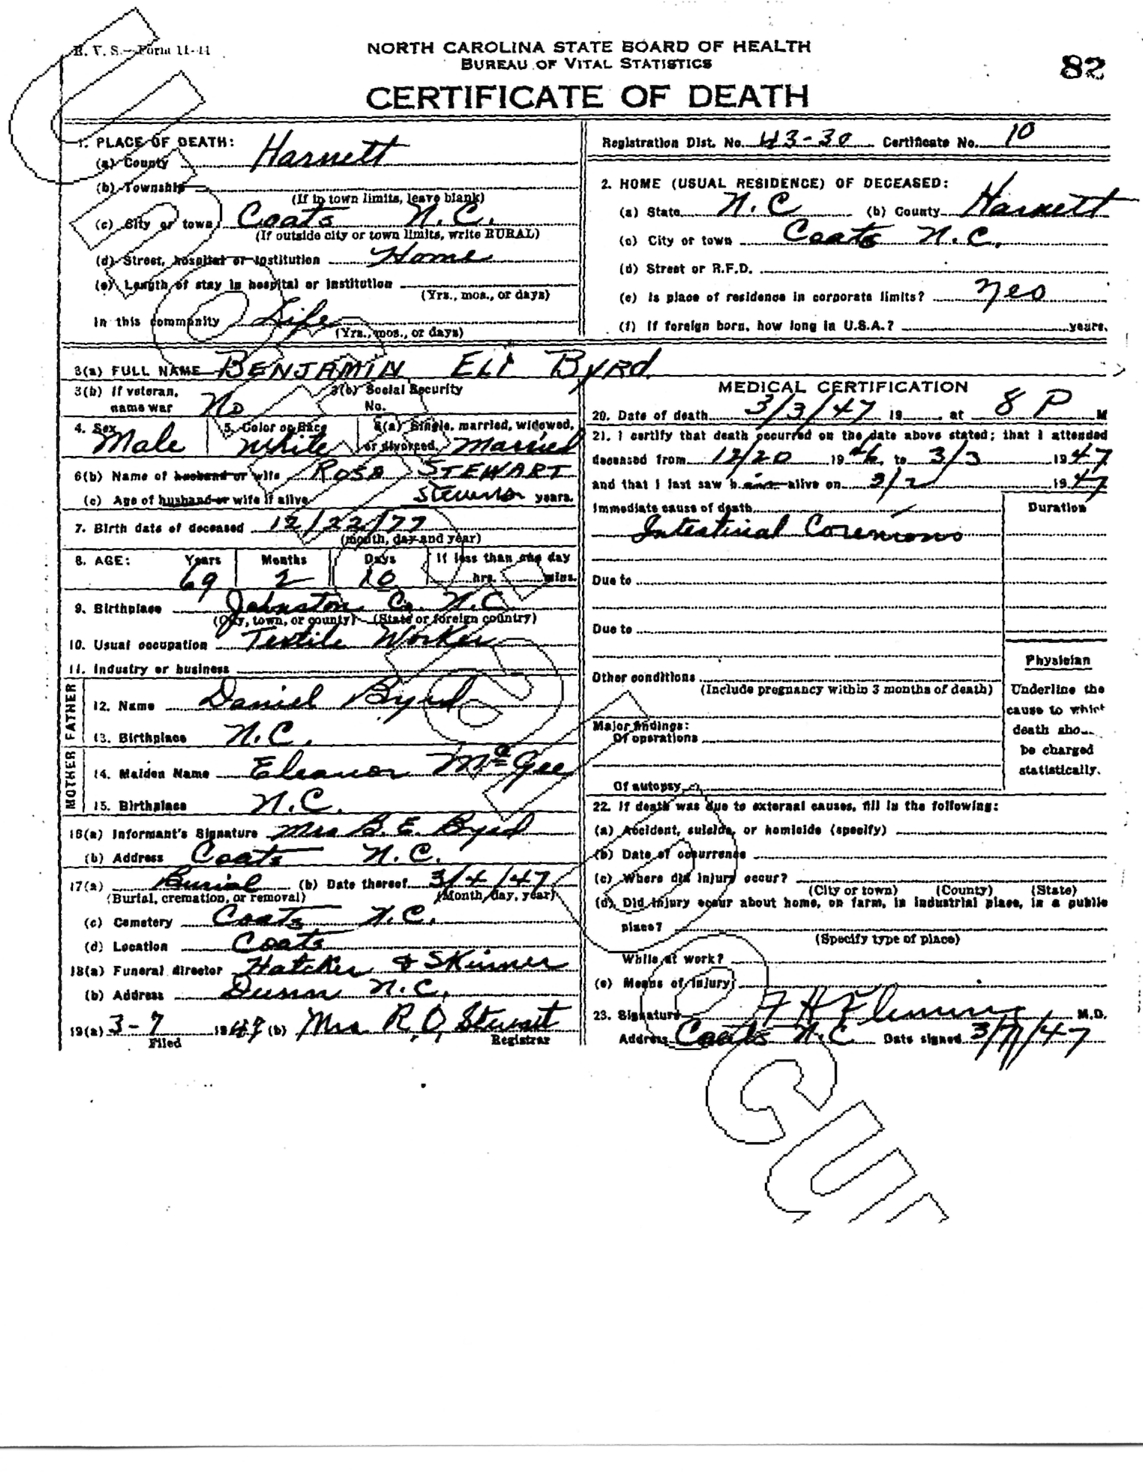 B. V. S.—Form 11-41
NORTH CAROLINA STATE BOARD OF HEALTH
BUREAU OF VITAL STATISTICS
82
CERTIFICATE OF DEATH
1. PLACE OF DEATH:
(a) County Harnett
(b) Township
(If in town limits, leave blank)
(c) City or town Coats N.C.
(If outside city or town limits, write RURAL)
(d) Street, hospital or institution Home
(e) Length of stay in hospital or institution
(Yrs., mos., or days)
In this community Life
(Yrs., mos., or days)
Registration Dist. No. 43-30 Certificate No. 10
2. HOME (USUAL RESIDENCE) OF DECEASED:
(a) State N.C (b) County Harnett
(c) City or town Coats N.C.
(d) Street or R.F.D.
(e) Is place of residence in corporate limits? Yes
(f) If foreign born, how long in U.S.A.? years.
3(a) FULL NAME BENJAMIN ELI BYRD
3(b) If veteran, name war No
3(c) Social Security No.
4. Sex Male
5. Color or Race White
6(a) Single, married, widowed, or divorced Married
6(b) Name of husband or wife ROSA STEWART
(c) Age of husband or wife if alive years.
7. Birth date of deceased 12/22/77
(month, day and year)
8. AGE: Years Months Days If less than one day
69 2 10 hrs. mins.
9. Birthplace Johnston Co. N.C.
(City, town, or county) (State or foreign country)
10. Usual occupation Textile Worker
11. Industry or business
FATHER
12. Name Daniel Byrd
13. Birthplace N.C.
MOTHER
14. Maiden Name Eleanor McGee
15. Birthplace N.C.
16(a) Informant's Signature Mrs B. E. Byrd
(b) Address Coats N.C.
17(a) Burial (b) Date thereof 3/4/47
(Burial, cremation, or removal) (Month, day, year)
(c) Cemetery Coats N.C.
(d) Location Coats
18(a) Funeral director Hatcher & Skinner
(b) Address Dunn N.C.
19(a) 3-7 1947 (b) Mrs R. O. Stewart
Filed Registrar
MEDICAL CERTIFICATION
20. Date of death 3/3/47 19 at 8 P M
21. I certify that death occurred on the date above stated; that I attended
deceased from 12/20 1946, to 3/3 1947
and that I last saw him alive on 3/2 1947
Immediate cause of death Duration
Intestinal
Due to
Due to
Other conditions
(Include pregnancy within 3 months of death)
Major findings:
Of operations
Of autopsy
Physician
Underline the
cause to which
death
be charged
statistically.
22. If death was due to external causes, fill in the following:
(a) Accident, suicide, or homicide (specify)
(b) Date of occurrence
(c) Where did injury occur?
(City or town) (County) (State)
(d) Did injury occur about home, on farm, in industrial place, in a public
place?
(Specify type of place)
While at work?
(e) Means of injury
23. Signature F H Fleming M.D.
Address Coats N.C Date signed 3/7/47